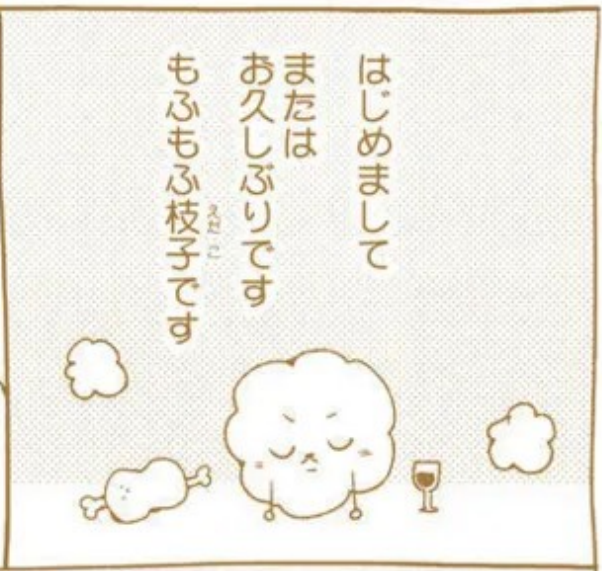 はじめまして
または
お久しぶりです
もふもふ枝子です
えだこ